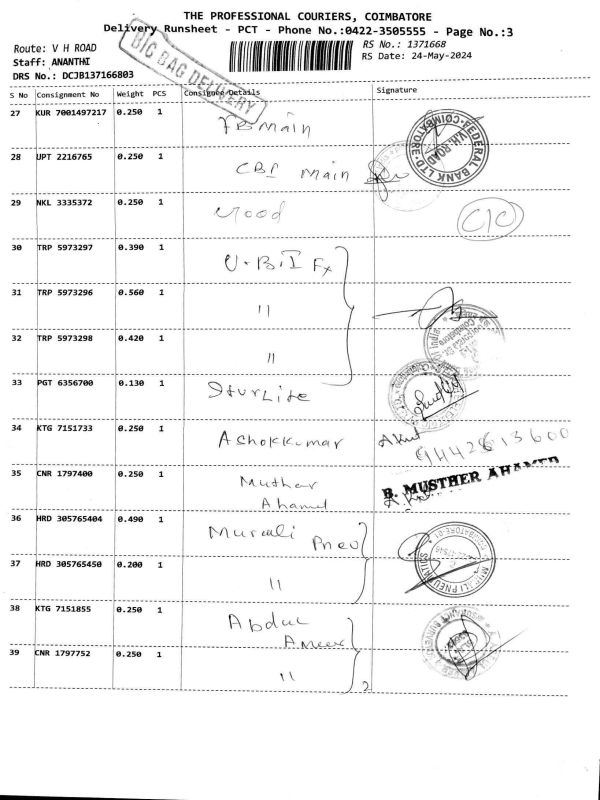 THE PROFESSIONAL COURIERS, COIMBATORE
Delivery Runsheet - PCT - Phone No.:0422-3505555 - Page No.:3
Route: V H ROAD
RS No.: 1371668
Staff: ANANTHI
RS Date: 24-May-2024
DRS No.: DCJB137166803
BIG BAG DELIVERY
S No Consignment No Weight PCS Consignee Details Signature
27 KUR 7001497217 0.250 1 FB Main
FEDERAL BANK LTD. COIMBATORE V.H. ROAD
28 UPT 2216765 0.250 1 CBI Main
29 NKL 3335372 0.250 1
30 TRP 5973297 0.390 1 U.B.I Fx
31 TRP 5973296 0.560 1 11
32 TRP 5973298 0.420 1 11
33 PGT 6356700 0.130 1
34 KTG 7151733 0.250 1 Ashokkumar
35 CNR 1797400 0.250 1 Muthar
Ahamed
B. MUSTHER AHAMED
36 HRD 305765404 0.490 1 Murali Pneu
37 HRD 305765450 0.200 1 11
38 KTG 7151855 0.250 1 Abdul
Ameer
39 CNR 1797752 0.250 1 11